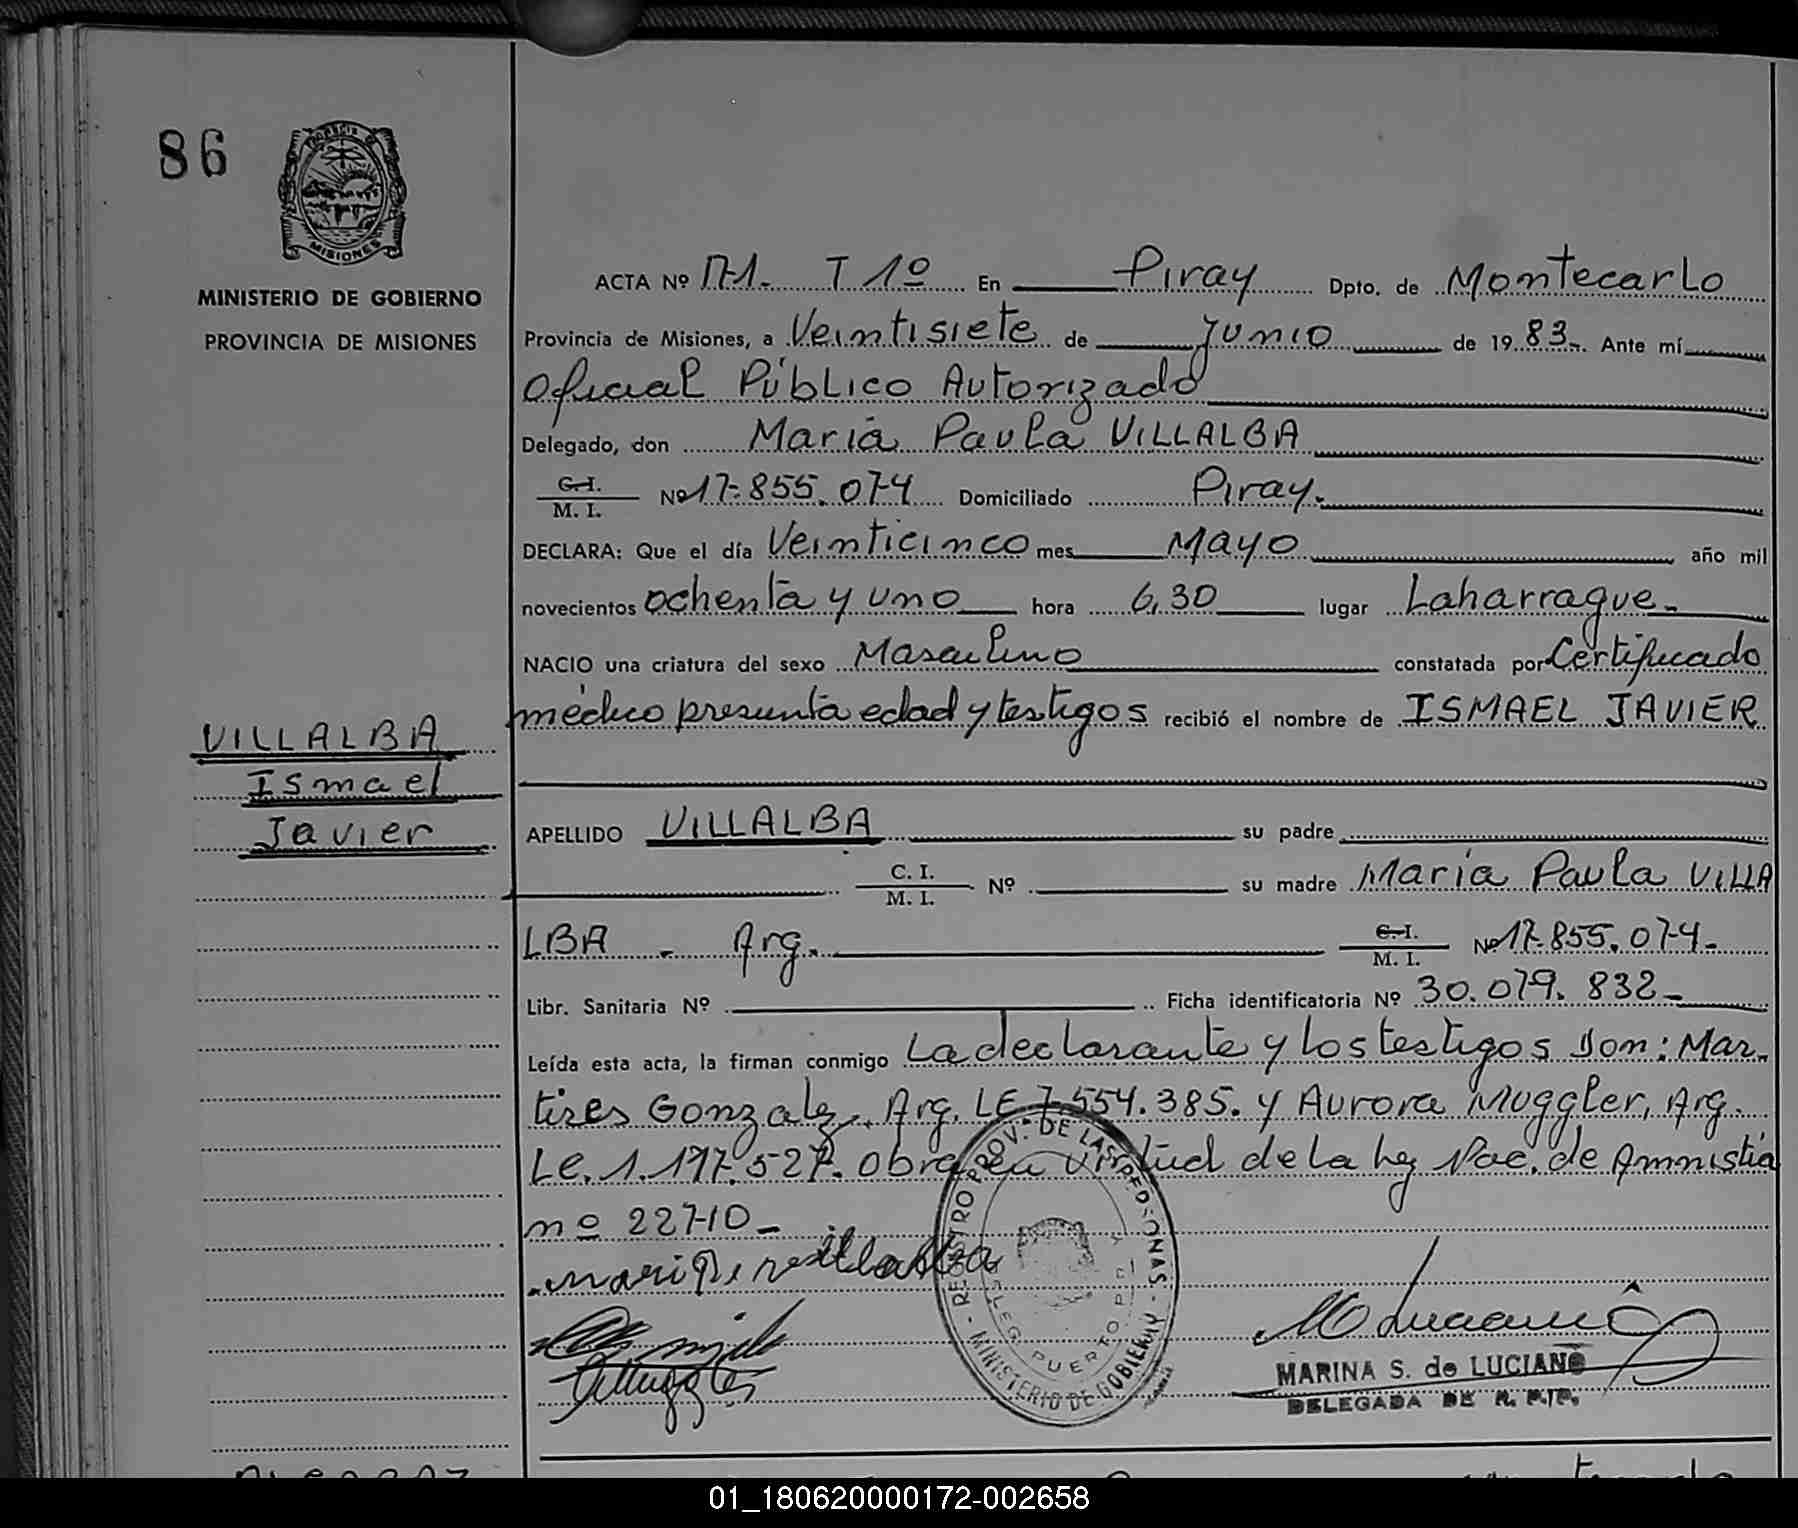 86
PROVINCIA DE
MISIONES
MINISTERIO DE GOBIERNO
PROVINCIA DE MISIONES
ACTA Nº 171. T 1º En Piray Dpto. de Montecarlo
Provincia de Misiones, a Veintisiete de Junio de 1983.. Ante mí
Oficial Público Autorizado
Delegado, don María Paula VILLALBA
C.I. M. I. Nº 17.855.074 Domiciliado Piray.
DECLARA: Que el día Veinticinco mes Mayo año mil
novecientos ochenta y uno hora 6,30 lugar Laharrague.
NACIO una criatura del sexo Masculino constatada por Certificado
médico presunta edad y testigos recibió el nombre de ISMAEL JAVIER
VILLALBA
Ismael
Javier
APELLIDO VILLALBA su padre
C. I. M. I. Nº su madre María Paula VILLA
LBA - Arg. C.I. M. I. Nº 17.855.074.
Libr. Sanitaria Nº Ficha identificatoria Nº 30.079.832
Leída esta acta, la firman conmigo La declarante y los testigos Don: Mar-
tires Gonzalez, Arg. LE 7.554.385. y Aurora Muggler, Arg.
LC. 1.197.527. Obra en virtud de la ley Nac. de Amnistia
nº 22710
REGISTRO PROV. DE LAS PERSONAS - MINISTERIO DE GOBIERNO
DELEG. PUERTO PIRAY
MARINA S. de LUCIANO
DELEGADA DE R. P./P.
01_180620000172-002658